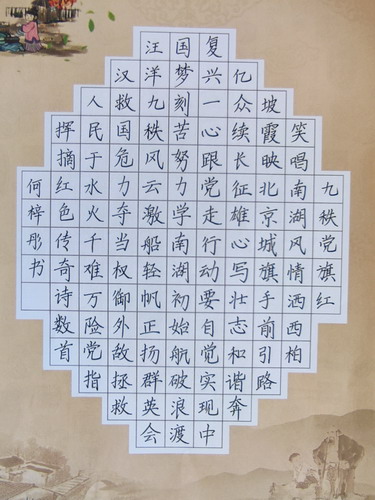 九秩党旗红
笑唱南湖风情洒西柏
坡霞映北京城旗手前引路
亿众续长征雄心写壮志和谐奔
复兴一心跟党走行动要自觉实现中
国梦刻苦努力学南湖初始航破浪渡
汪洋九秩风云激船轻帆正扬群英会
汉救国危力夺当权御外敌拯救
人民于水火千难万险党指
挥摘红色传奇诗数首
何梓彤书